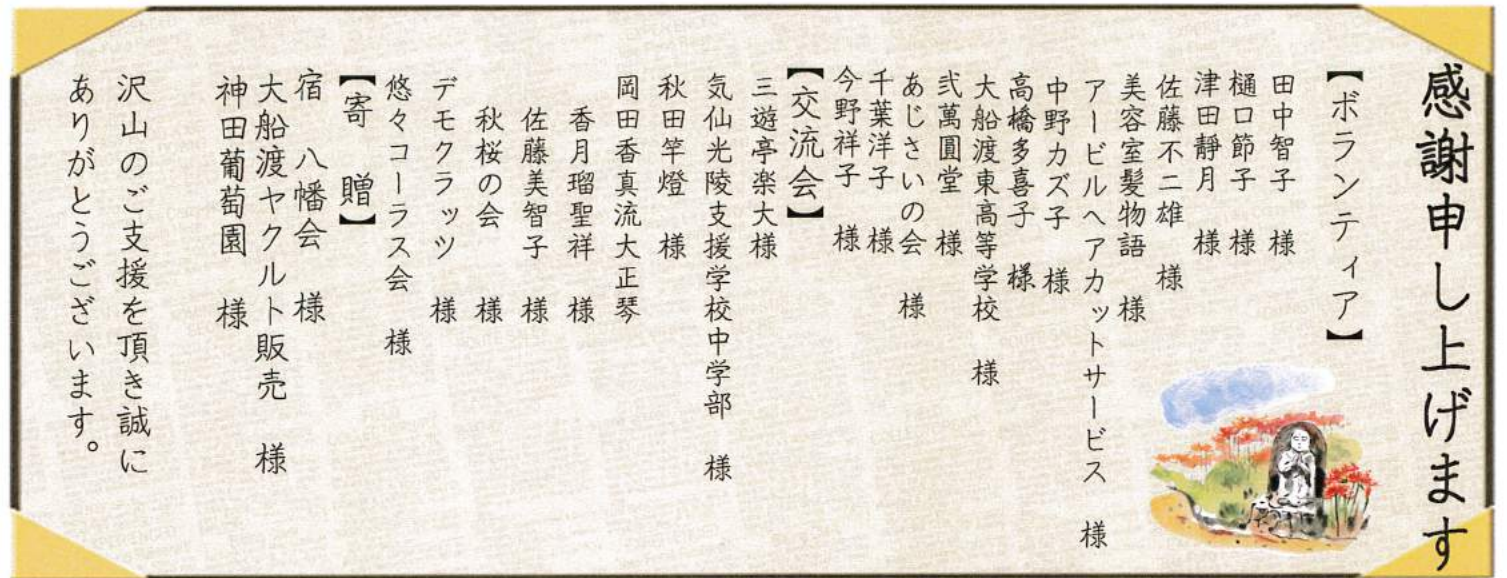 感謝申し上げます
【ボランティア】
田中智子 様
樋口節子 様
津田靜月 様
佐藤不二雄 様
美容室髪物語 様
アービルヘアカットサービス 様
中野カズ子 様
高橋多喜子 様
大船渡東高等学校 様
弐萬圓堂 様
あじさいの会 様
千葉洋子 様
今野祥子 様
【交流会】
三遊亭楽大様
気仙光陵支援学校中学部 様
秋田竿燈 様
岡田香真流大正琴
香月瑠聖祥 様
佐藤美智子 様
秋桜の会 様
デモクラッツ 様
悠々コーラス会 様
【寄 贈】
宿 八幡会 様
大船渡ヤクルト販売 様
神田葡萄園 様
沢山のご支援を頂き誠に
ありがとうございます。